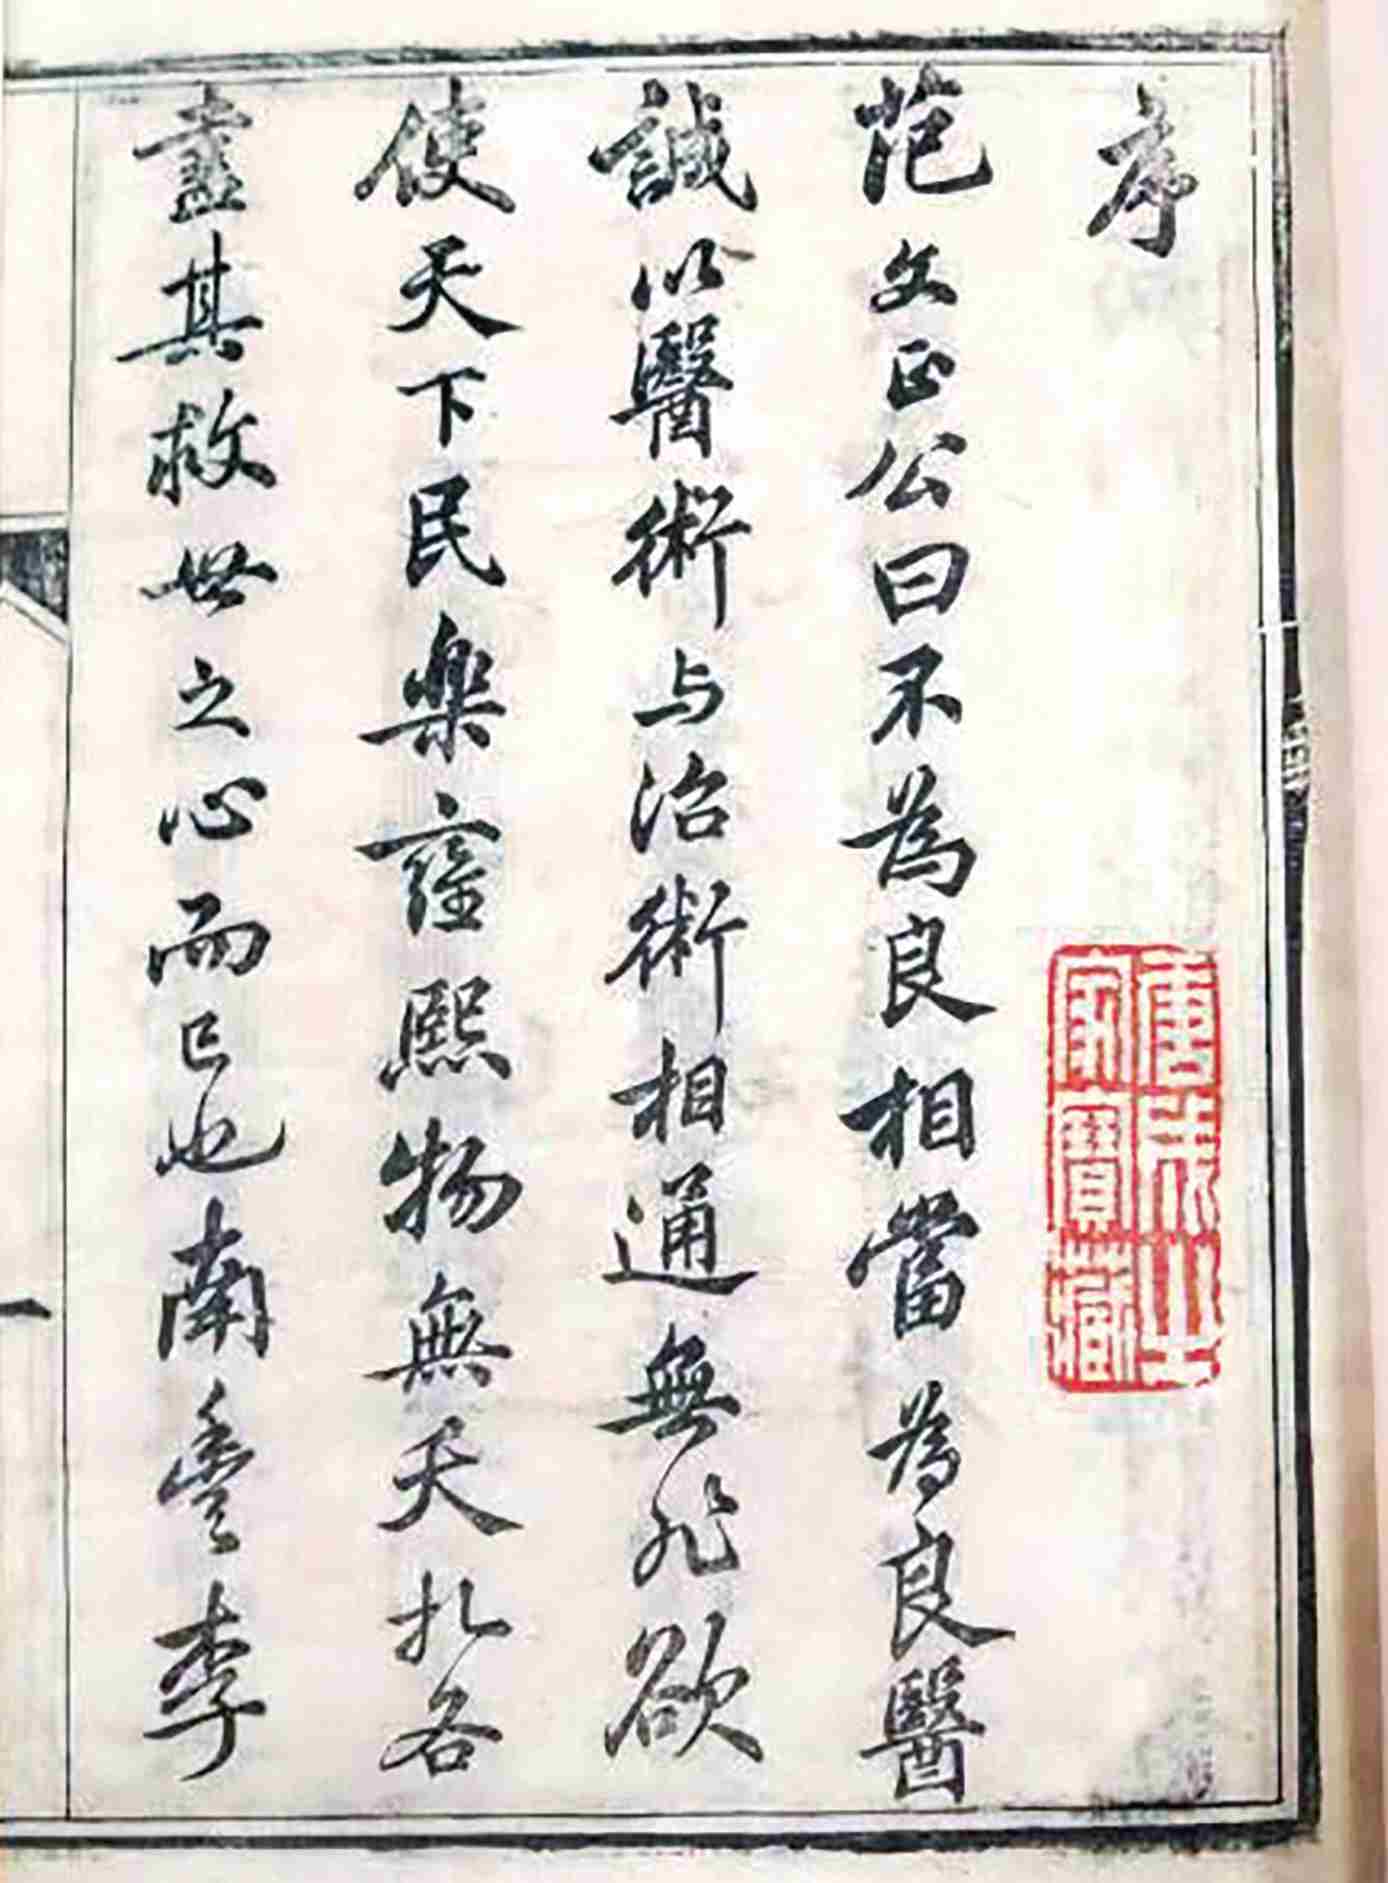 序
范文正公曰不為良相當為良醫
誠以醫術与治術相通無非欲
使天下民樂雍熙物無夭札各
盡其救世之心而已也南豐李
唐成之
家寶藏
一